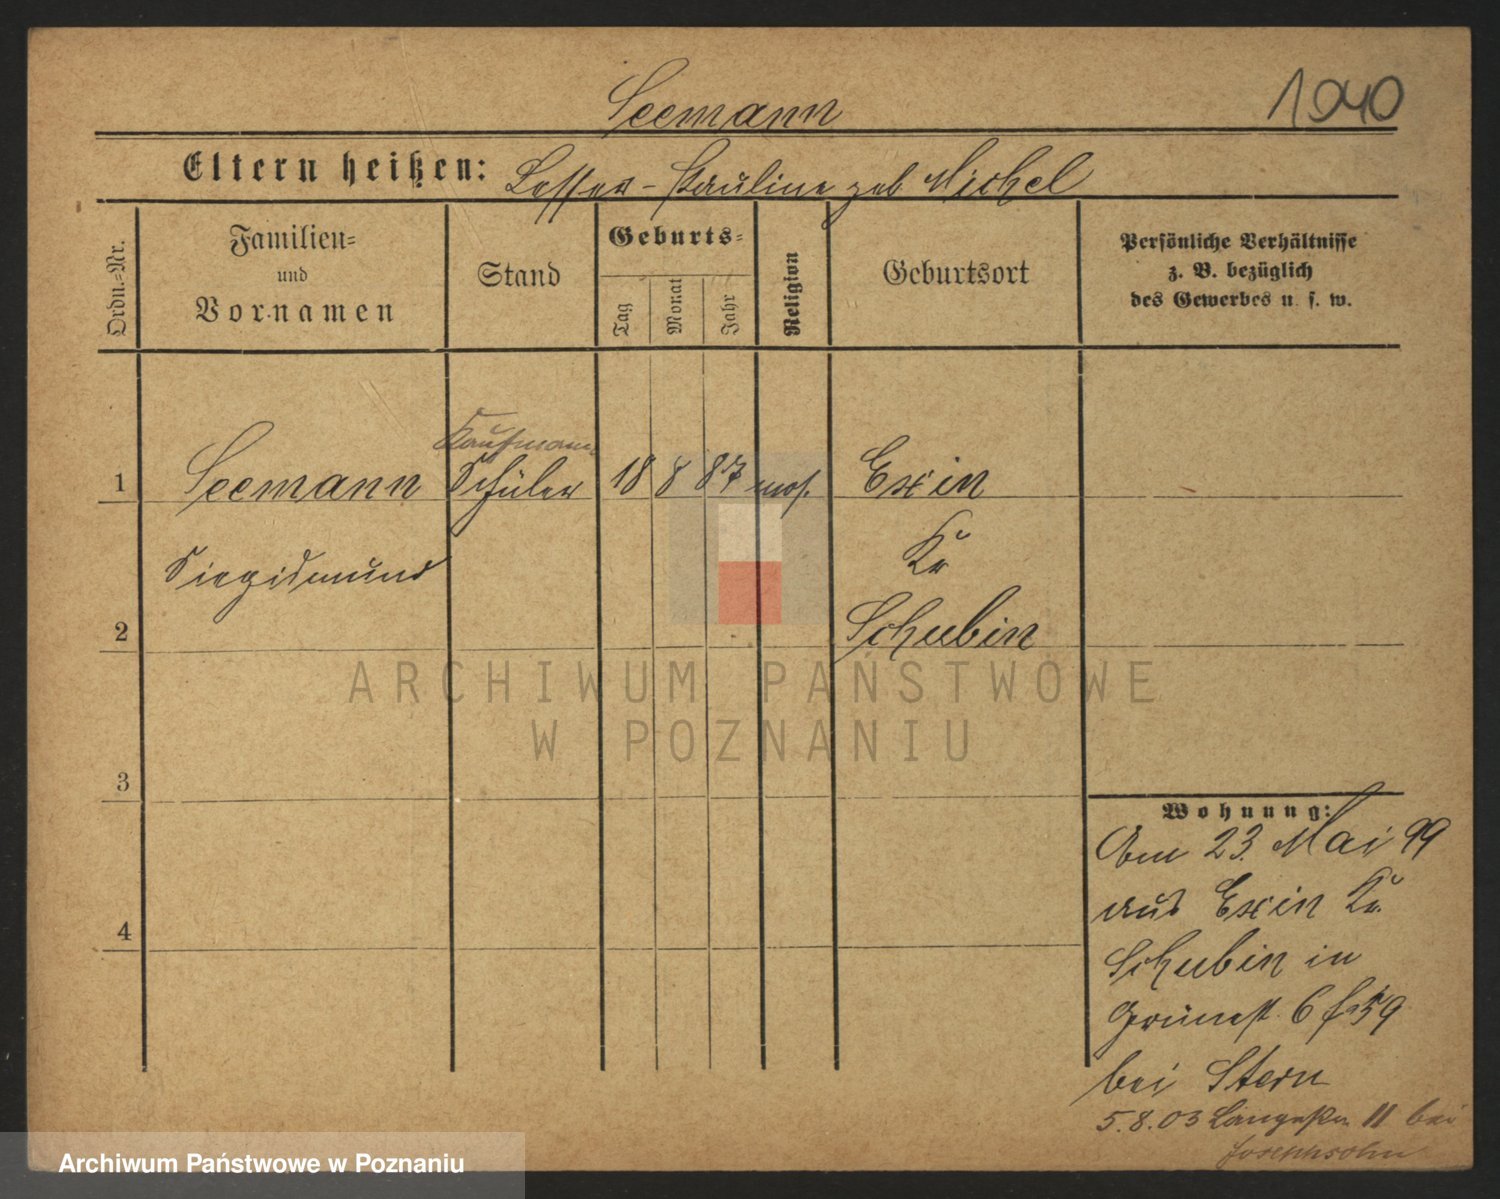 Seemann
1940
Eltern heißen: Lesser - Pauline geb Michel
Ordn.=Nr.
Familien=
und
Vornamen
Stand
Geburts=
Tag
Monat
Jahr
Religion
Geburtsort
Persönliche Verhältnisse
z. B. bezüglich
des Gewerbes u. s. w.
Kaufmann
1 Seemann Schüler 18 8 87 mos. Exin
Siegismund Kr
2 Schubin
ARCHIWUM PAŃSTWOWE
W POZNANIU
3
4
Wohnung:
Am 23. Mai 99
aus Exin Kr.
Schubin in
6
bei Stern
5.8.03 11 bei
Josephsohn
Archiwum Państwowe w Poznaniu